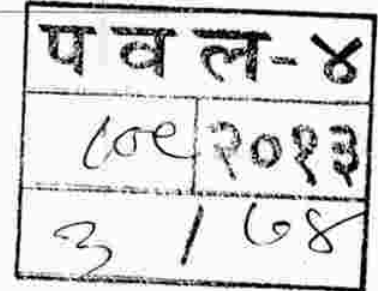 पवल-४
२०१३
३ / ७४